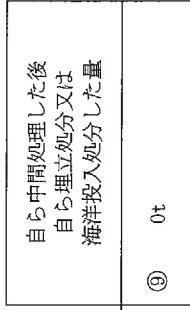 自ら中間処理した後
自ら埋立処分又は
海洋投入処分した量
⑨ 0t